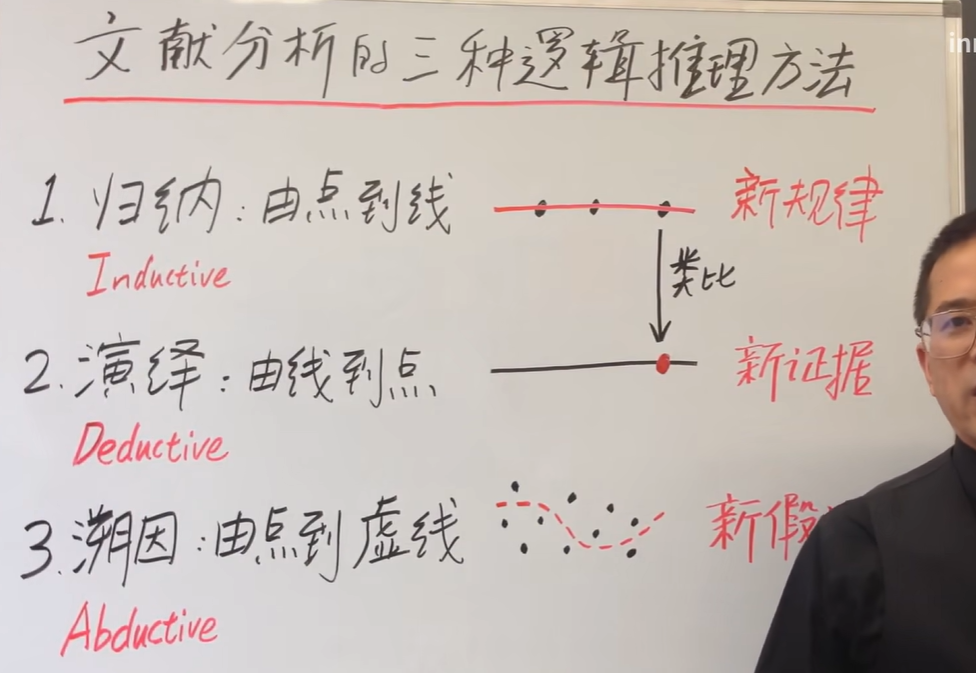 文献分析的三种逻辑推理方法
1. 归纳：由点到线 新规律
Inductive
类比
2. 演绎：由线到点 新证据
Deductive
3. 溯因：由点到虚线 新假
Abductive